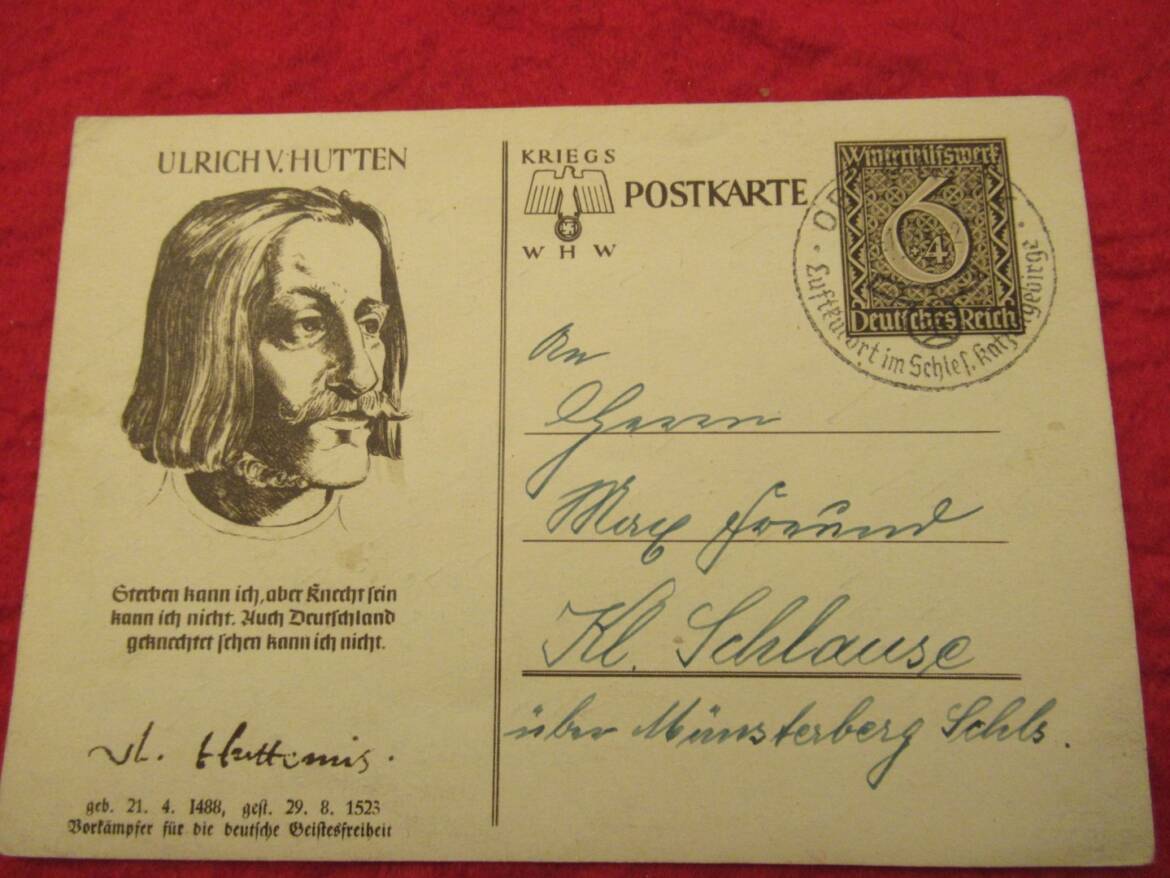 ULRICH V. HUTTEN
Sterben kann ich, aber Knecht sein
kann ich nicht. Auch Deutschland
geknechtet sehen kann ich nicht.
geb. 21. 4. 1488, gest. 29. 8. 1523
Vorkämpfer für die deutsche Geistesfreiheit
KRIEGS
POSTKARTE
W H W
Winterhilfswerk
6
+4
Deutsches Reich
Luftkurort im Schles. Katzengebirge
An
Herrn
Max Freund
Kl. Schlause
über Münsterberg Schls.